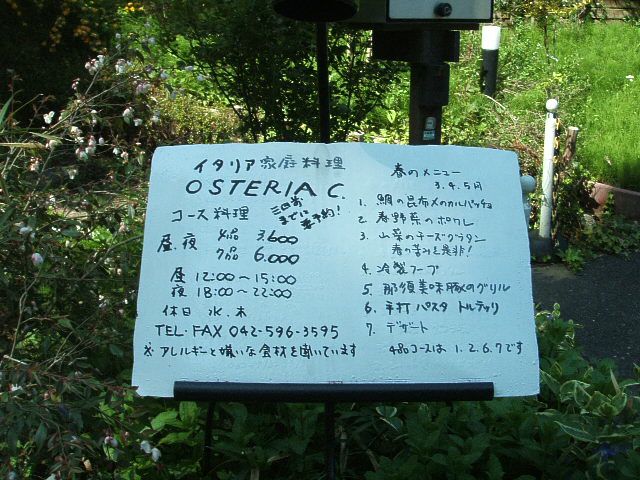 イタリア家庭料理
OSTERIA C.
コース料理
三日前
までに
要予約!
昼.夜 4品 3.600
7品 6.000
昼 12:00〜15:00
夜 18:00〜22:00
休日 水.木
TEL.FAX 042-596-3595
※アレルギーと嫌いな食材を聞いています
春のメニュー
3.4.5月
1. 鯛の昆布〆のカルパッチョ
2. 春野菜の
3. 山菜のチーズグラタン
春の苦みを是非!
4. 冷製スープ
5. 那須美味豚〆のグリル
6. 手打パスタ
7. デザート
4品コースは1.2.6.7です